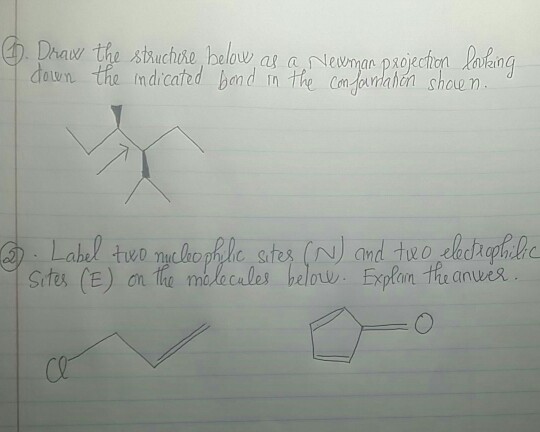 1. Draw the structure below as a Newman projection looking
down the indicated bond in the conformation shown.
2. Label two nucleophilic sites (N) and two electrophilic
Sites (E) on the molecules below. Explain the answer.
Cl
O